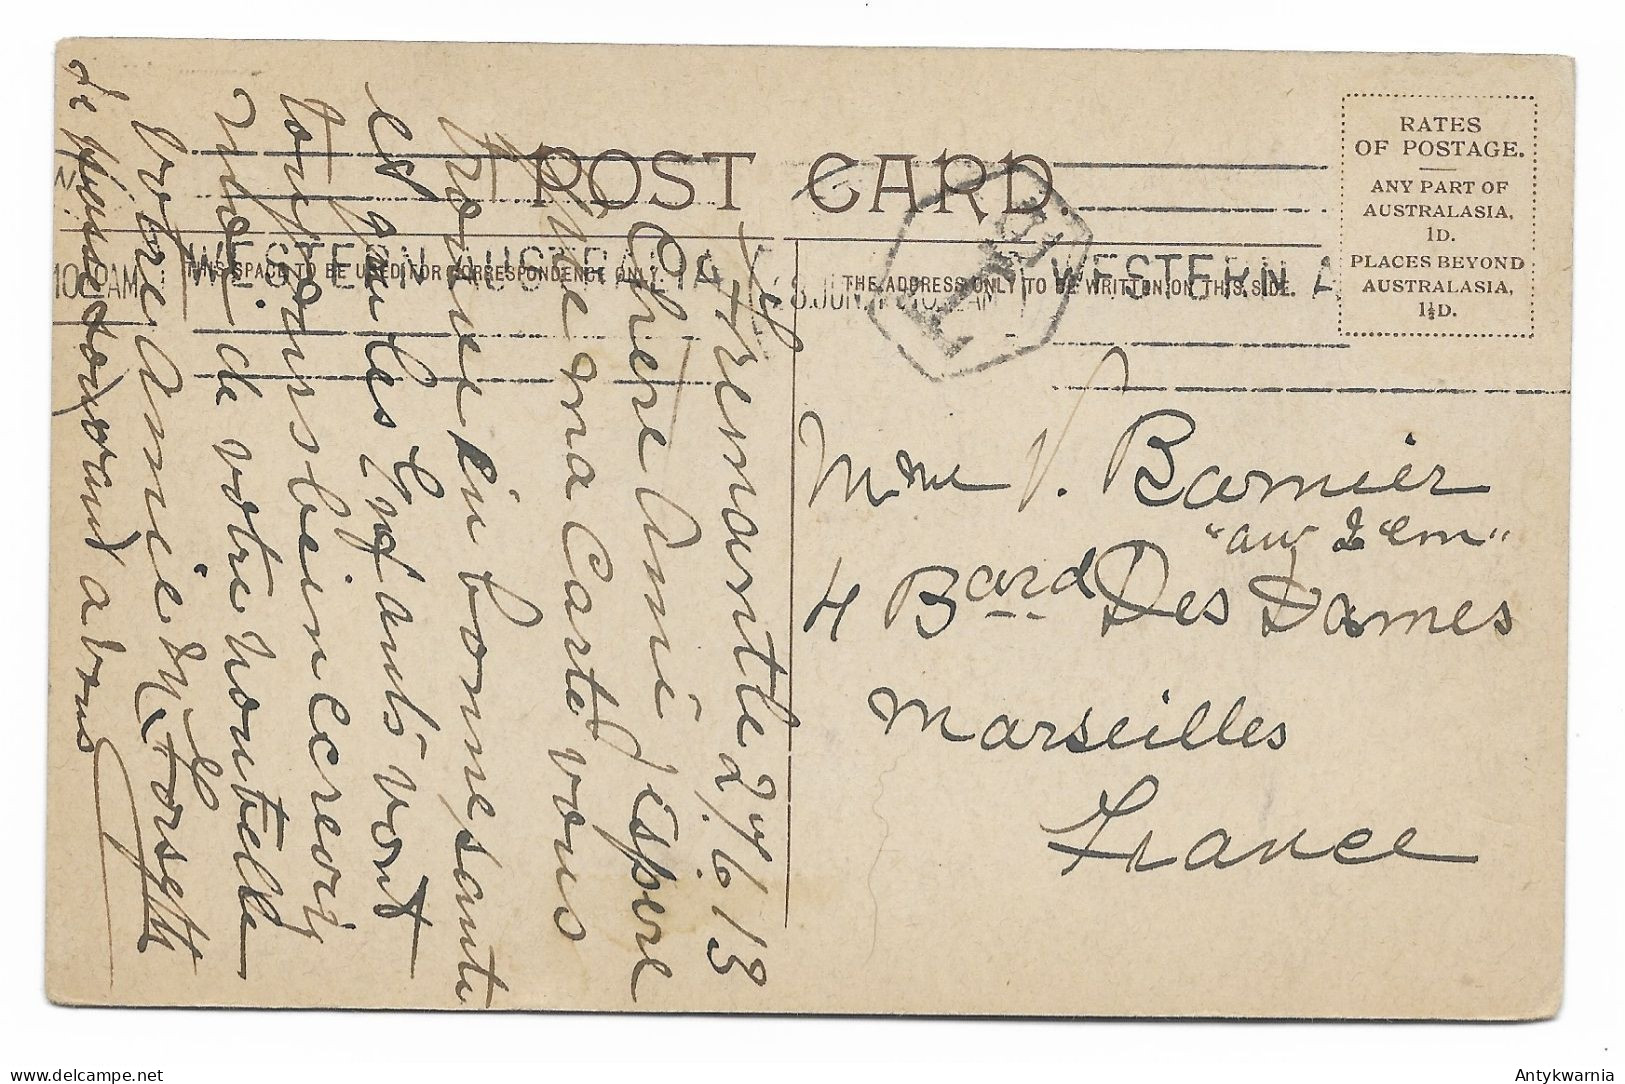 POST CARD
RATES
OF POSTAGE.
ANY PART OF
AUSTRALASIA,
1D.
PLACES BEYOND
AUSTRALASIA,
1½D.
WESTERN AUSTRALIA
WESTERN A
10 AM
28.JUN
T
THIS SPACE TO BE USED FOR CORRESPONDENCE ONLY
THE ADDRESS ONLY TO BE WRITTEN ON THIS SIDE.
Fremantle 27/6/13
Chère Amie j'espere
que ma Carte vous
trouve en bonne sante
et que les Enfants vont
toujours bein Ecrevoiz
moi de votre nouvelle
votre Amie
Mme V. Barnier
"au 2 em"
4 Bard Des Dames
Marseilles
France
Antykwarnia